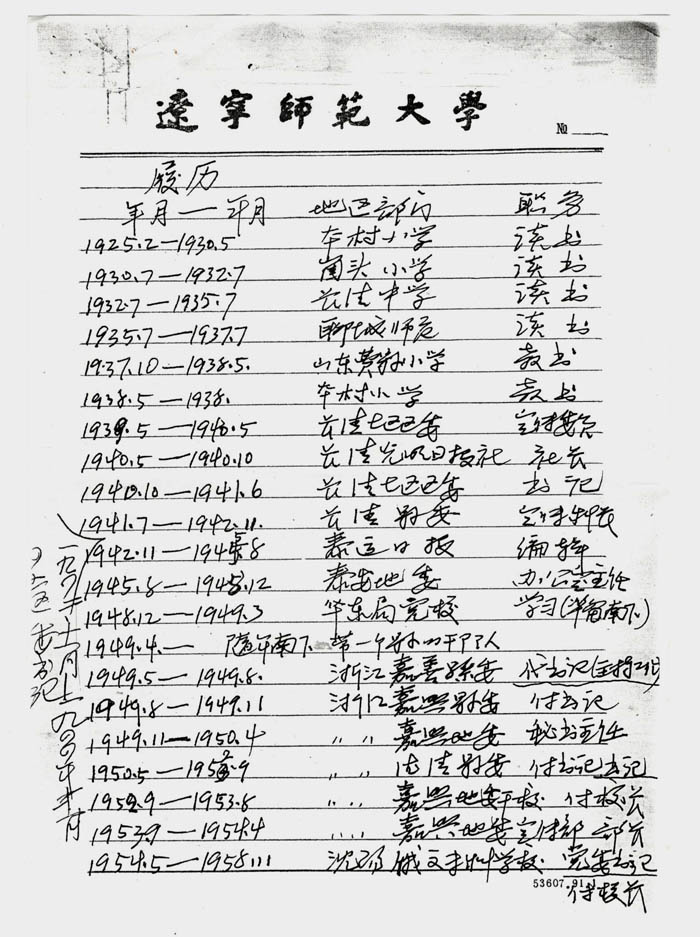 遼寧師範大學
№
履历
年月—年月 地区部门 职务
1925.2—1930.5 本村小学 读书
1930.7—1932.7 崮头小学 读书
1932.7—1935.7 长清中学 读书
1935.7—1937.7 聊城师范 读书
1937.10—1938.5. 山东黄村小学 教书
1938.5—1938. 本村小学 教书
1939.5—1940.5 长清七区区委 宣传委员
1940.5—1940.10 长清光明日报社 社长
1940.10—1941.6 长清七区区委 书记
1941.7—1942.11. 长清县委 宣传科长
1942.11—1945.8 泰运日报 编辑
1945.8—1948.12 泰安地委 办公室主任
1948.12—1949.3 华东局党校 学习(准备南下)
1949.4.— 随军南下 带一个县的干部队
1949.5—1949.8. 浙江嘉善县委 付书记(主持工作)
1949.8—1949.11 浙江嘉兴县委 付书记
1949.11—1950.4 〃 〃 嘉兴地委 秘书主任
1950.5—1952.9 〃 〃 德清县委 付书记 书记
1952.9—1953.8 〃 〃 嘉兴地委干校 付校长
1953.9—1954.4 〃 〃 嘉兴地委宣传部 部长
1954.5—1958.11 沈阳俄文专科学校 党委书记
付校长
53607.91